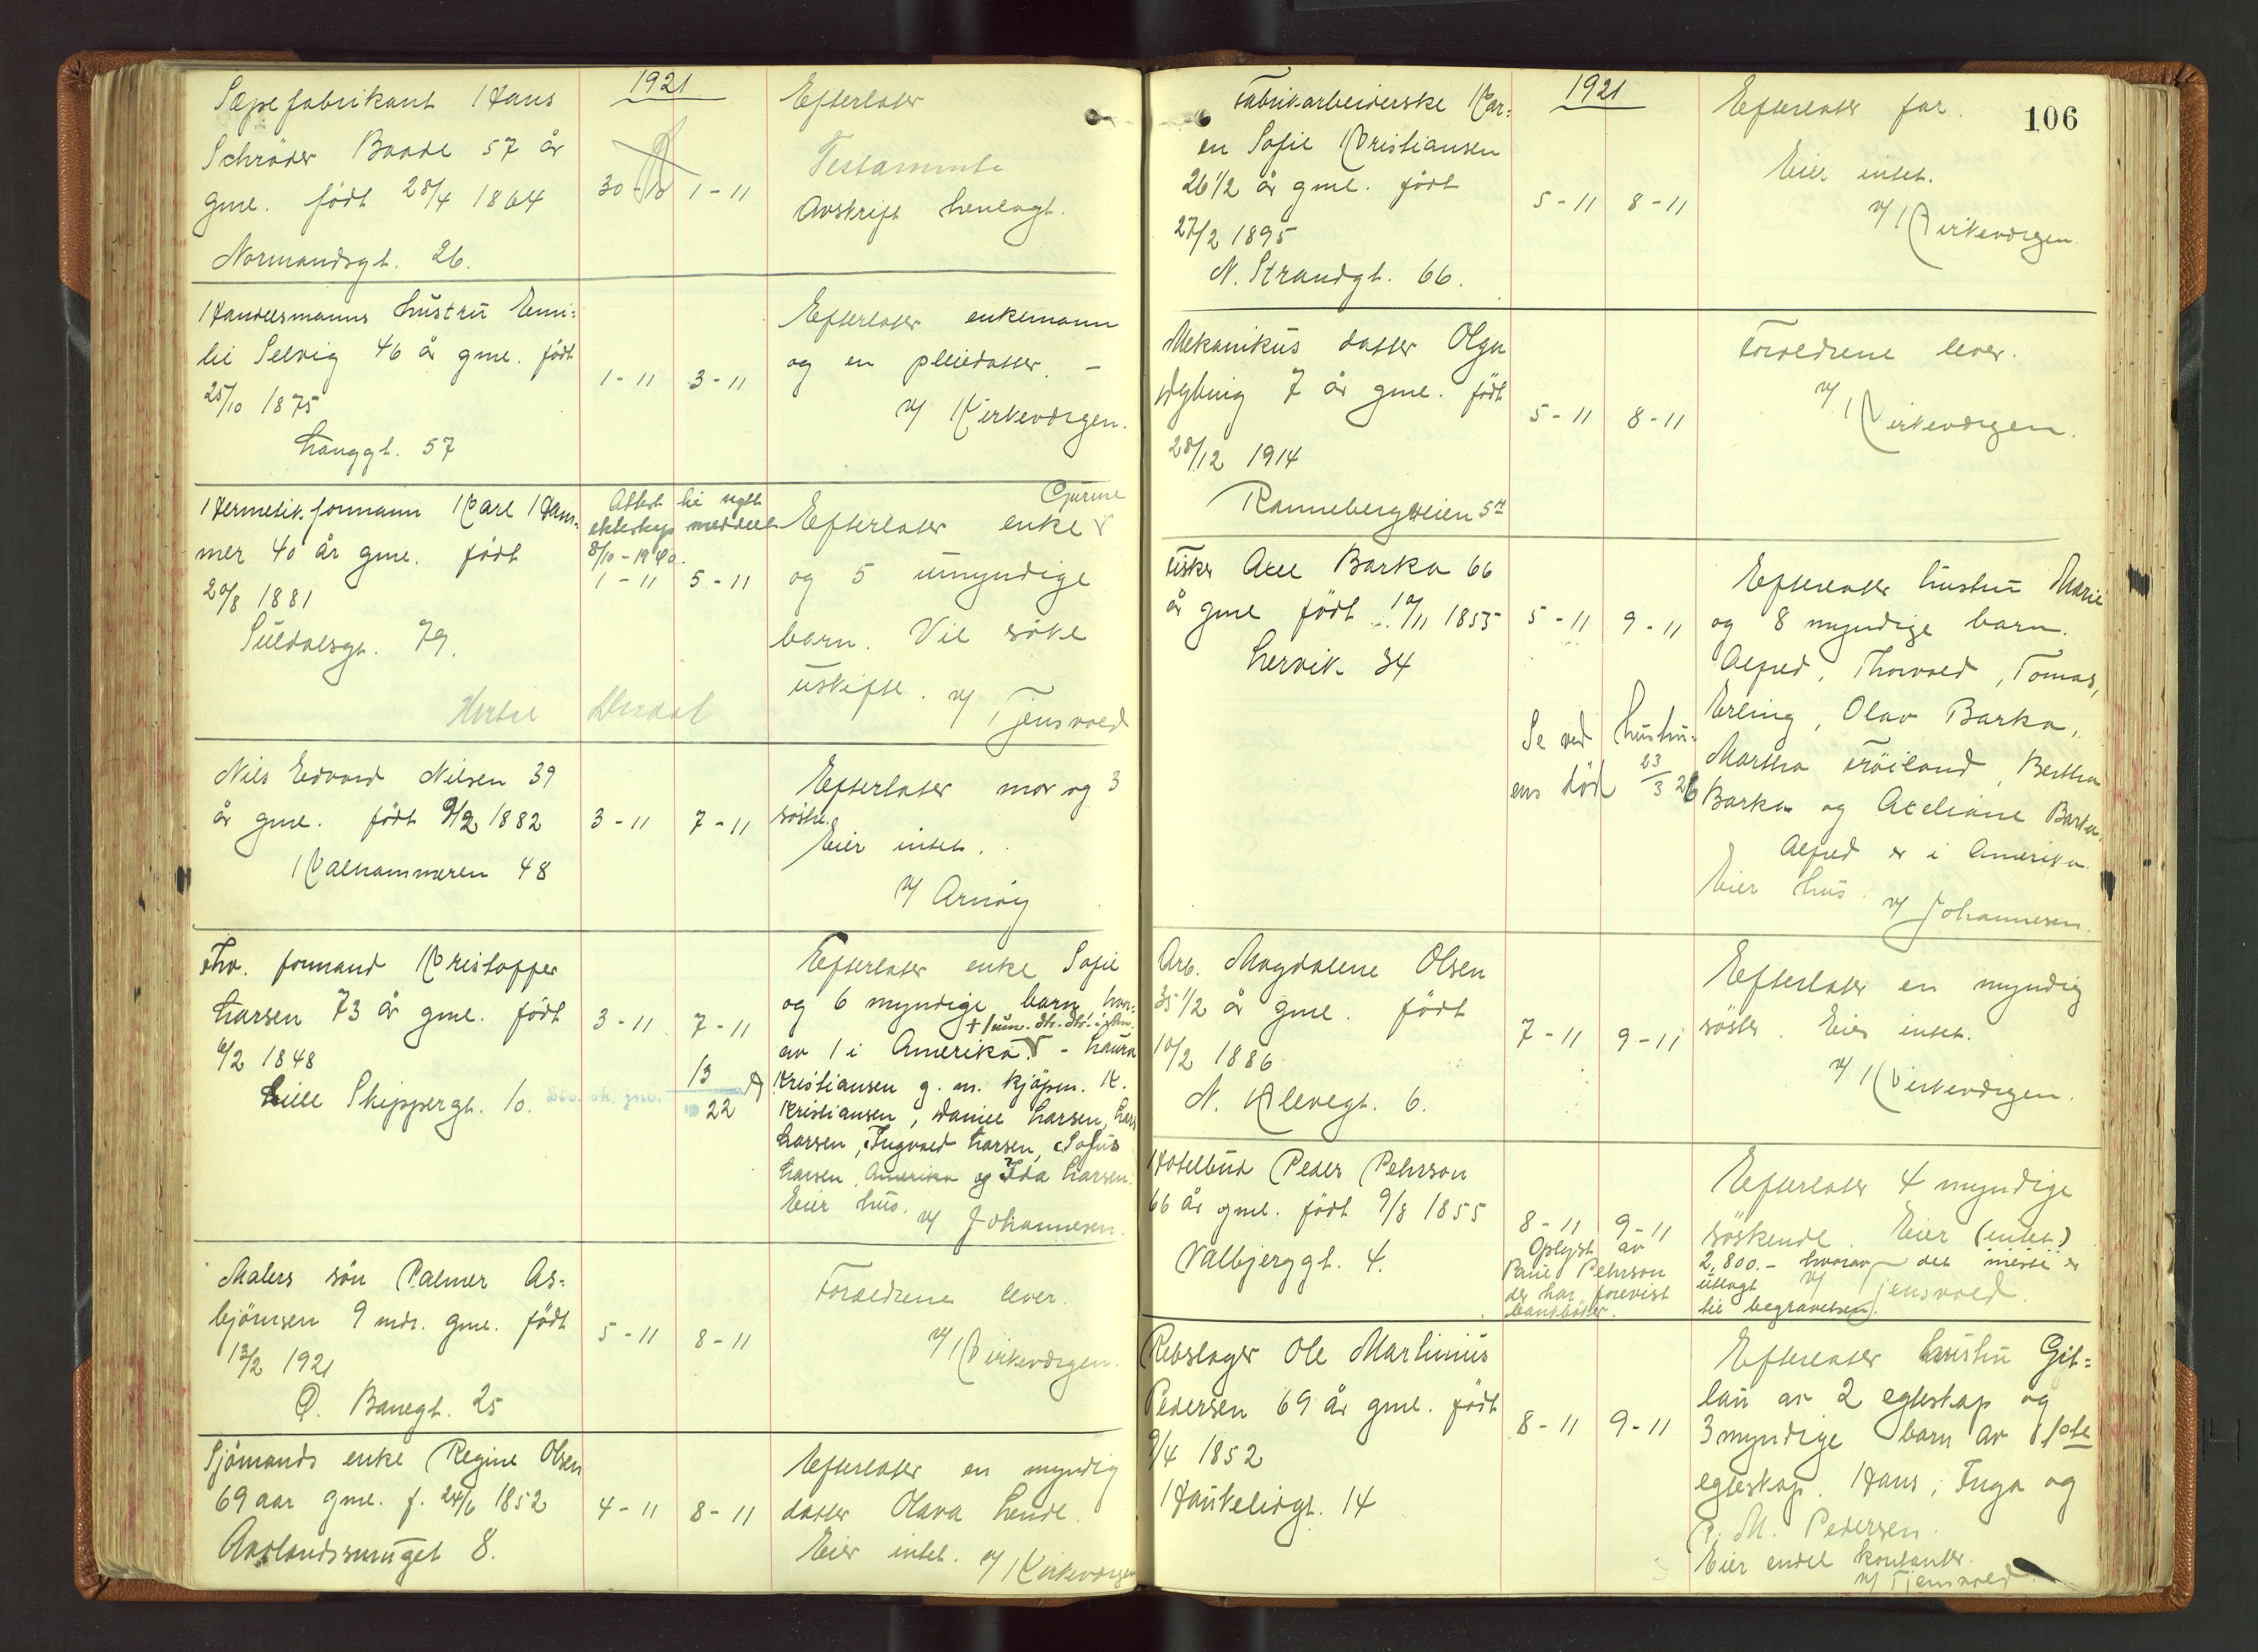 1921
Sæpefabrikant Hans
Schröder Baade 57 år
gml. født 28/4 1864
Normandsgt. 26.
30-10 1-11
Efterlater
Testamente
Avskrift henlagt.
Handelsmanns hustru Emi-
lie Selvig 46 år gml. født
25/10 1875
Langgt. 57
1-11 3-11
Efterlater enkemann
og en pleiedatter. -
v/ Kirkevergen.
Hermetik.formann Karl Ham-
mer 40 år gml. født
20/8 1881
Suldalsgt. 79.
Attest til nytt
ekteskap meddelt
8/10-1940.
1-11 5-11
Gurine
Efterlater enke
og 5 umyndige
barn. Vil søke
uskifte. v/ Tjensvold
Nils Edvard Nilsen 39
år gml. født 9/2 1882
Kalhammeren 48
3-11 7-11
Efterlater mor og 3
søstre.
Eier intet.
v/ Arnøy
formand Kristoffer
Larsen 73 år gml. født
6/2 1848
Lille Skippergt. 10.
3-11 7-11
13
22
Efterlater enke Sofie
og 6 myndige barn, hvor-
av 1 i Amerika. - Laura
Kristiansen g. m. kjøpm. K.
Kristiansen, Daniel Larsen, Lars
Larsen, Ingvald Larsen, Sofus
Larsen, Amerika og Ida Larsen.
Eier hus. v/ Johannesen.
Malers søn Palmer As-
bjørnsen 9 mdr. gml. født
13/2 1921
Ø. Banegt. 25
5-11 8-11
Forældrene lever.
v/ Kirkevergen.
Sjømands enke Regine Olsen
69 aar gml. f. 24/6 1852
Aaslandssmuget 8.
4-11 8-11
Efterlater en myndig
datter Olava Lende.
Eier intet. v/ Kirkevergen
106
1921
Fabrikarbeiderske Kar-
en Sofie Kristiansen
26 1/2 år gml. født
27/2 1895
N. Strandgt. 66.
5-11 8-11
Efterlater far.
Eier intet.
v/ Kirkevergen.
Mekanikus datter Olga
Dybing 7 år gml. født
28/12 1914
Rannebergveien 5
5-11 8-11
Forældrene lever.
v/ Kirkevergen.
Fisker Axel Barka 66
år gml født 10/11 1855
Lervik 34
5-11 9-11
Se ved hustru-
ens død 23/3 26
Efterlater hustru Marie
og 8 myndige barn.
Alfred, Thorvald, Tomas,
Erling, Olav Barka,
Martha Frøiland, Bertha
Barka og Axeliane Barka.
Alfred er i Amerika.
Eier hus. v/ Johannesen.
Arb. Magdalene Olsen
35 1/2 år gml. født
10/2 1886
N. Klevegt. 6.
7-11 9-11
Efterlater en myndig
søster. Eier intet.
v/ Kirkevergen.
Hotelbud Peder Pehrson
66 år gml. født 9/8 1855
Valbjerggt. 4.
8-11 9-11
Oplyst av
Paul Pehrson
der har forevist
bankbøker.
Efterlater 4 myndige
søskende. Eier (intet)
2,800.- hvorav det meste er
utlagt v/ Tjensvold.
til begravelsen.
Rebslager Ole Martinius
Pedersen 69 år gml. født
9/4 1852
Haukeligt. 14
8-11 9-11
Efterlater hustru Git-
lau av 2 egteskap og
3 myndige barn av 1ste
egteskap. Hans, Inga og
P. M. Pedersen.
Eier endel kontanter.
v/ Tjensvold.